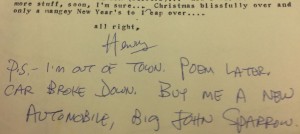 more stuff, soon, I'm sure... Christmas blissfully over and
only a mangey New Year's is t'cay over....
all right,
Henry
P.S.- I'M OUT OF TOWN. POEM LATER.
CAR BROKE DOWN. BUY ME A NEW
AUTOMOBILE, BIG JOHN SPARROW.